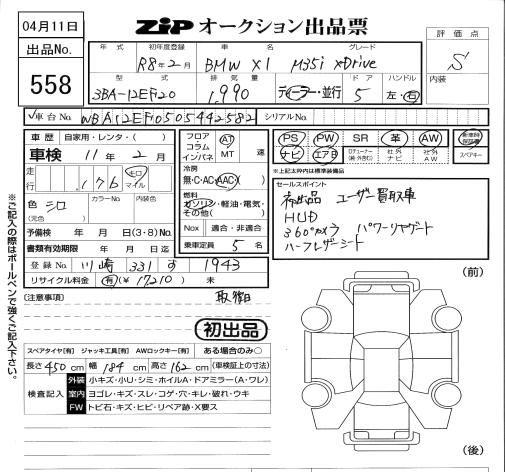 04月11日
ZIP オークション出品票
出品No.
558
年式 初年度登録 車名 グレード
R8年2月 BMW X1 M35i xDrive
型式 排気量 ドア ハンドル
3BA-12EF20 1,990 ディーラー・並行 5 左・右
評価点
S
内装
車台No. WBA12EF0505442582 シリアルNo.
車歴 自家用・レンタ・( )
車検 11年2月
走行 176 キロ マイル
色 シロ (元色) カラーNo. 内装色
予備検 年 月 日(3・8)No.
書類有効期限 年 月 日
登録No. 川崎 331 す 1943
リサイクル料金 有(¥17210) 未
フロア コラム インパネ AT MT 速
冷房 無・C・AC・AAC・( )
燃料 ガソリン・軽油・電気・その他( )
Nox 適合・非適合
乗車定員 5 名
PS PW SR 革 AW 新車時保証書
ナビ エアB 社外ナビ 社外AW スペアキー
※上記太枠内は標準装備品
セールスポイント
ユーザー買取車
HUD
360°カメラ パワーリヤゲート
ハーフレザーシート
(注意事項) 取説
初出品
スペアタイヤ[有] ジャッキ工具[有] AWロックキー[有] ある場合のみ○
長さ 450 cm 幅 184 cm 高さ 162 cm (車検証上の寸法)
検査記入
外装 小キズ・小U・シミ・ホイルA・ドアミラー(A・ワレ)
室内 ヨゴレ・キズ・スレ・コゲ・穴・キレ・破れ・ウキ
FW トビ石・キズ・ヒビ・リペア跡・X要ス
(前)
(後)
※ご記入の際はボールペンで強くご記入下さい。